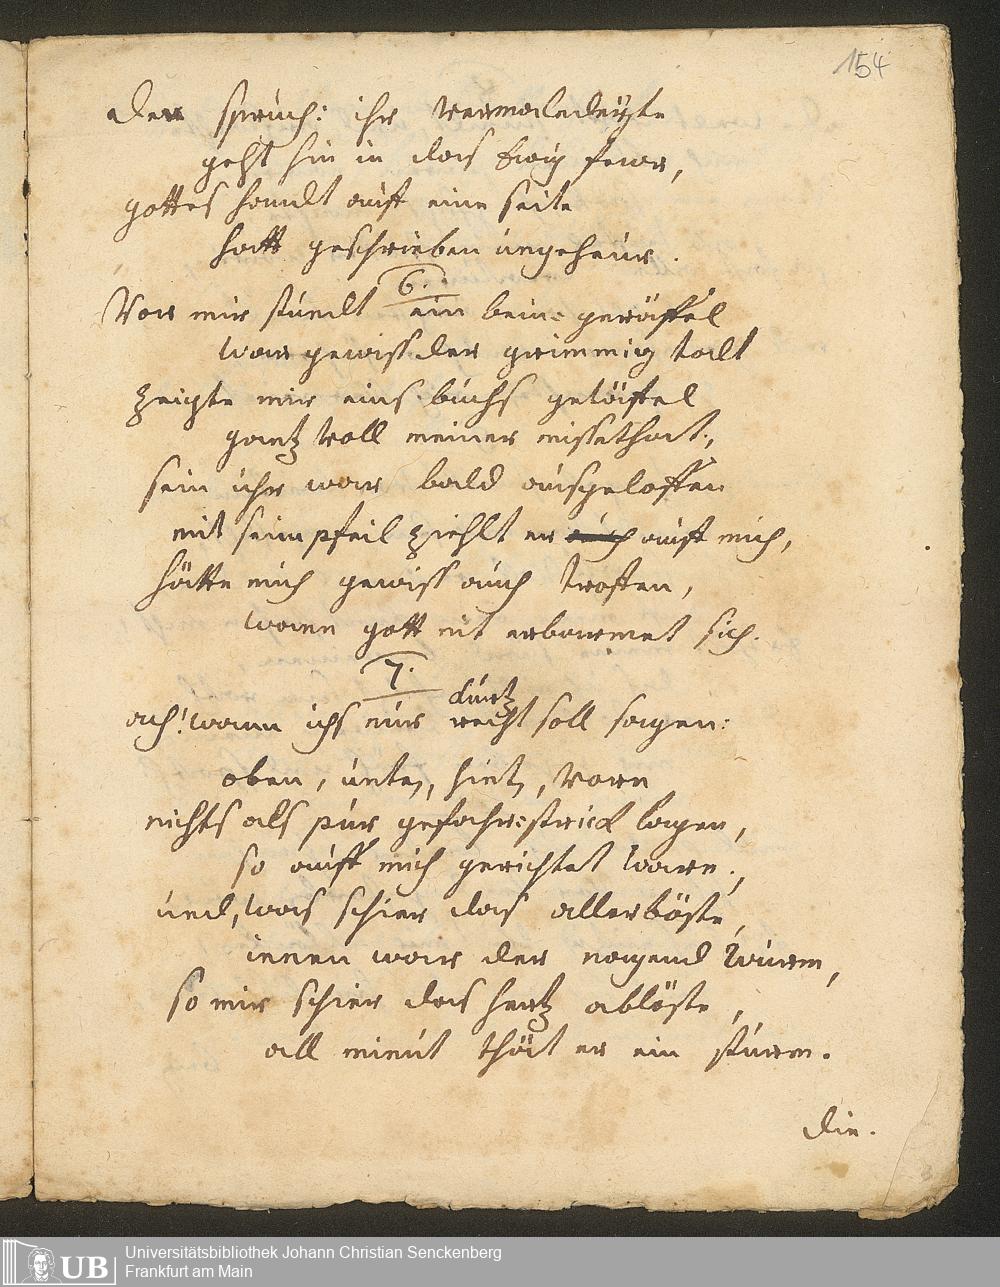 154
der spruch: ihr vermaledeÿte
geht hin in das Ewig fewr,
gottes handt auff eine seite
hatt geschrieben ungeheur.
6.
Vor mir stundt ein bein=geräffel
war gewiss der grimmig todt
zeigte mir eins buchs getäffel
gantz voll meiner missethat,
sein uhr war bald ausgeloffen
mit seim pfeil ziehlt er auff mich,
hätte mich gewiss auch troffen,
wann gott nit erbarmet sich.
7.
kurtz
ach! wann ichs nur recht soll sagen:
oben, unten, hinten, vorn
nichts als pur gefahr=strick lagen,
so auff mich gerichtet warn,
und, was schier das allerböste,
innen war der nagend wurm,
so mir schier das hertz ablöste,
all minut thät er ein sturm.
die.
Universitätsbibliothek Johann Christian Senckenberg
Frankfurt am Main
UB